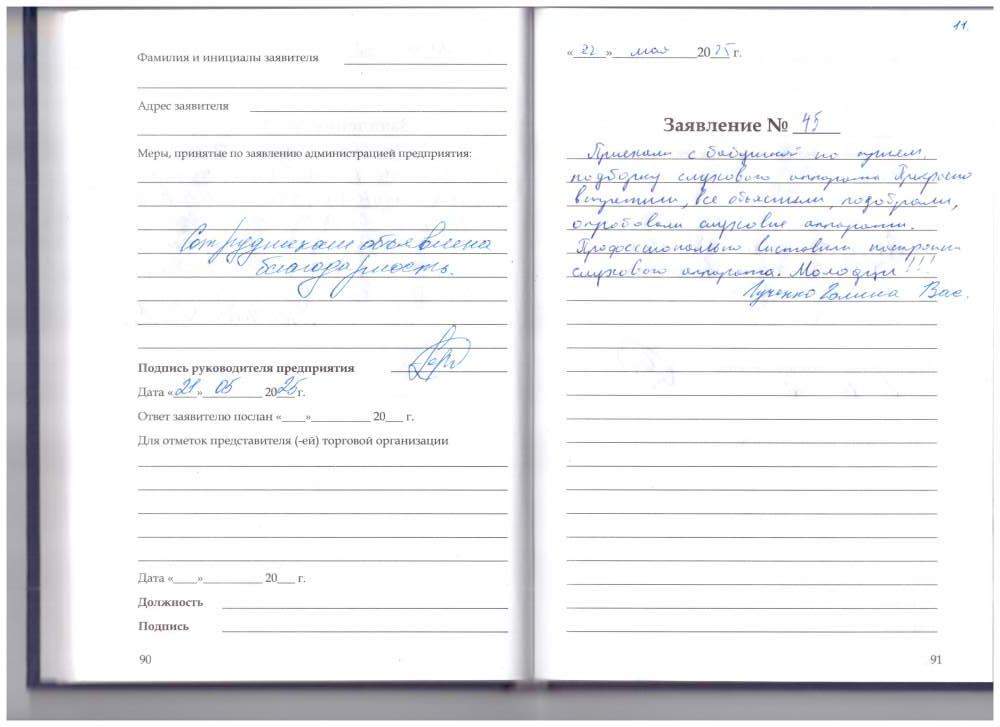 Фамилия и инициалы заявителя
Адрес заявителя
Меры, принятые по заявлению администрацией предприятия:
Сотрудникам объявлена
благодарность.
Подпись руководителя предприятия
Дата «21» 05 2025г.
Ответ заявителю послан «____»__________ 20___ г.
Для отметок представителя (-ей) торговой организации
Дата «____»__________ 20___ г.
Должность
Подпись
90
11.
«22» мая 2025 г.
Заявление № 45
Приехали с бабушкой на прием,
подборку слухового аппарата. Прекрасно
встретили, все объяснили, подобрали,
опробовали слуховые аппараты.
Профессионально выставили настройки
слухового аппарата. Молодцы!!!
Галина Вас.
91